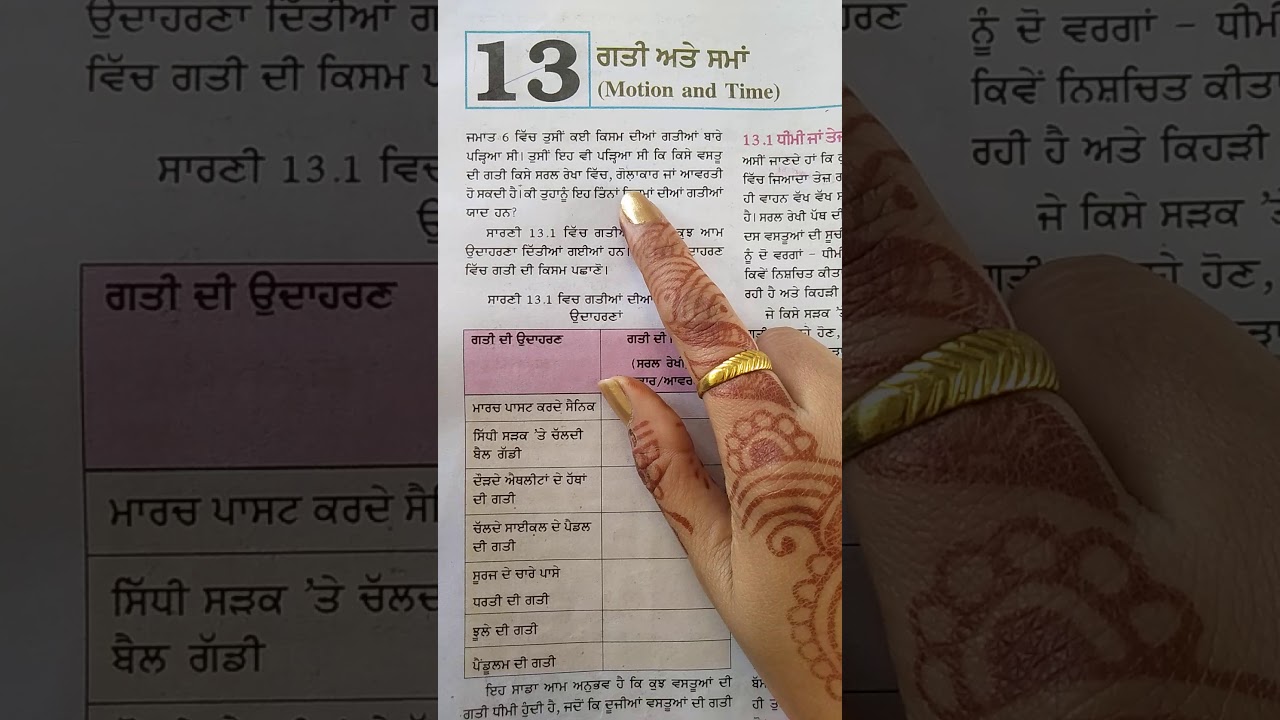 13
ਗਤੀ ਅਤੇ ਸਮਾਂ
(Motion and Time)
ਜਮਾਤ 6 ਵਿੱਚ ਤੁਸੀਂ ਕਈ ਕਿਸਮ ਦੀਆਂ ਗਤੀਆਂ ਬਾਰੇ
ਪੜ੍ਹਿਆ ਸੀ। ਤੁਸੀਂ ਇਹ ਵੀ ਪੜ੍ਹਿਆ ਸੀ ਕਿ ਕਿਸੇ ਵਸਤੂ
ਦੀ ਗਤੀ ਕਿਸੇ ਸਰਲ ਰੇਖਾ ਵਿੱਚ, ਗੋਲਾਕਾਰ ਜਾਂ ਆਵਰਤੀ
ਹੋ ਸਕਦੀ ਹੈ। ਕੀ ਤੁਹਾਨੂੰ ਇਹ ਤਿੰਨਾਂ ਦੀਆਂ ਗਤੀਆਂ
ਯਾਦ ਹਨ?
ਸਾਰਣੀ 13.1 ਵਿੱਚ ਕੁਝ ਆਮ
ਉਦਾਹਰਣਾ ਦਿੱਤੀਆਂ ਗਈਆਂ ਹਨ।
ਵਿੱਚ ਗਤੀ ਦੀ ਕਿਸਮ ਪਛਾਣੋ।
ਸਾਰਣੀ 13.1 ਵਿਚ ਗਤੀਆਂ ਦੀਆਂ
ਉਦਾਹਰਣਾਂ
ਗਤੀ ਦੀ ਉਦਾਹਰਣ
ਗਤੀ ਦੀ
(ਸਰਲ ਰੇਖੀ
ਮਾਰਚ ਪਾਸਟ ਕਰਦੇ ਸੈਨਿਕ
ਸਿੱਧੀ ਸੜਕ 'ਤੇ ਚੱਲਦੀ
ਬੈਲ ਗੱਡੀ
ਦੌੜਦੇ ਐਥਲੀਟਾਂ ਦੇ ਹੱਥਾਂ
ਦੀ ਗਤੀ
ਚੱਲਦੇ ਸਾਈਕਲ ਦੇ ਪੈਡਲ
ਦੀ ਗਤੀ
ਸੂਰਜ ਦੇ ਚਾਰੇ ਪਾਸੇ
ਧਰਤੀ ਦੀ ਗਤੀ
ਝੂਲੇ ਦੀ ਗਤੀ
ਪੈਂਡੂਲਮ ਦੀ ਗਤੀ
ਇਹ ਸਾਡਾ ਆਮ ਅਨੁਭਵ ਹੈ ਕਿ ਕੁਝ ਵਸਤੂਆਂ ਦੀ
ਗਤੀ ਧੀਮੀ ਹੁੰਦੀ ਹੈ, ਜਦੋਂ ਕਿ ਦੂਜੀਆਂ ਵਸਤੂਆਂ ਦੀ ਗਤੀ
13.1 ਧੀਮੀ ਜਾਂ
ਅਸੀਂ ਜਾਣਦੇ ਹਾਂ ਕਿ
ਵਿੱਚ ਜਿਆਦਾ ਤੇਜ਼
ਹੀ ਵਾਹਨ ਵੱਖ ਵੱਖ
ਹੈ। ਸਰਲ ਰੇਖੀ ਪੱਥ ਦੀ
ਦਸ ਵਸਤੂਆਂ ਦੀ ਸੂਚੀ
ਨੂੰ ਦੋ ਵਰਗਾਂ - ਧੀਮੀ
ਕਿਵੇਂ ਨਿਸ਼ਚਿਤ ਕੀਤਾ
ਰਹੀ ਹੈ ਅਤੇ ਕਿਹੜੀ
ਜੇ ਕਿਸੇ ਸੜਕ 'ਤੇ
ਹੋਣ,